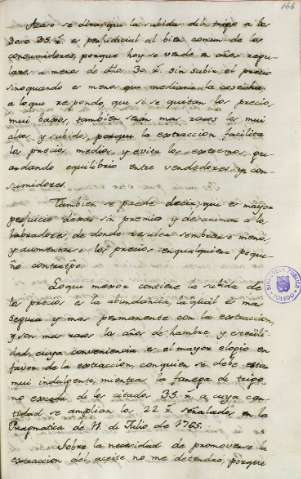 166
Acaso se dirá que la subida del trigo a los
30 o 35 r.s es perjudicial al bien comun de los
consumidores porque hoy se vende a años regu-
lares a menos de dhos 30 r.s sin subir el precio
sino quando es menos que mediana la cosecha
a lo que respondo, que si se quitan los precios
mui bajos, tambien seran mas raros los mui
altos y subidos, porque la extraccion facilita
los precios medios y evita los extremos, gu-
ardando equilibrio entre vendedores y con-
sumidores.
Tambien se puede decir, que es mayor
perjuicio dexar sin premio y desanimar a los
labradores, de donde resulta sembrarse menos
y aumentarse los precios en qualquiera peque-
ño contratiempo.
Lo que menos conviene es salirse de
los precios a la abundancia la qual es mas
segura y mas permanente con la extraccion,
y son mas raros los años de hambre y esterili-
dad, cuya conveniencia es el mayor elogio en
favor de la extraccion, con quien se debe estar
mui indulgente, mientras la fanega de trigo
no exceda de los citados 35 r.s a cuya can-
tidad se amplien los 22 r.s señalados en la
Pragmatica de 11 de Julio de 1765.
Sobre la necesidad de promoverse la
extraccion del aceite no me detendre, porque
BIBLIOTECA PUBLICA
TOLEDO